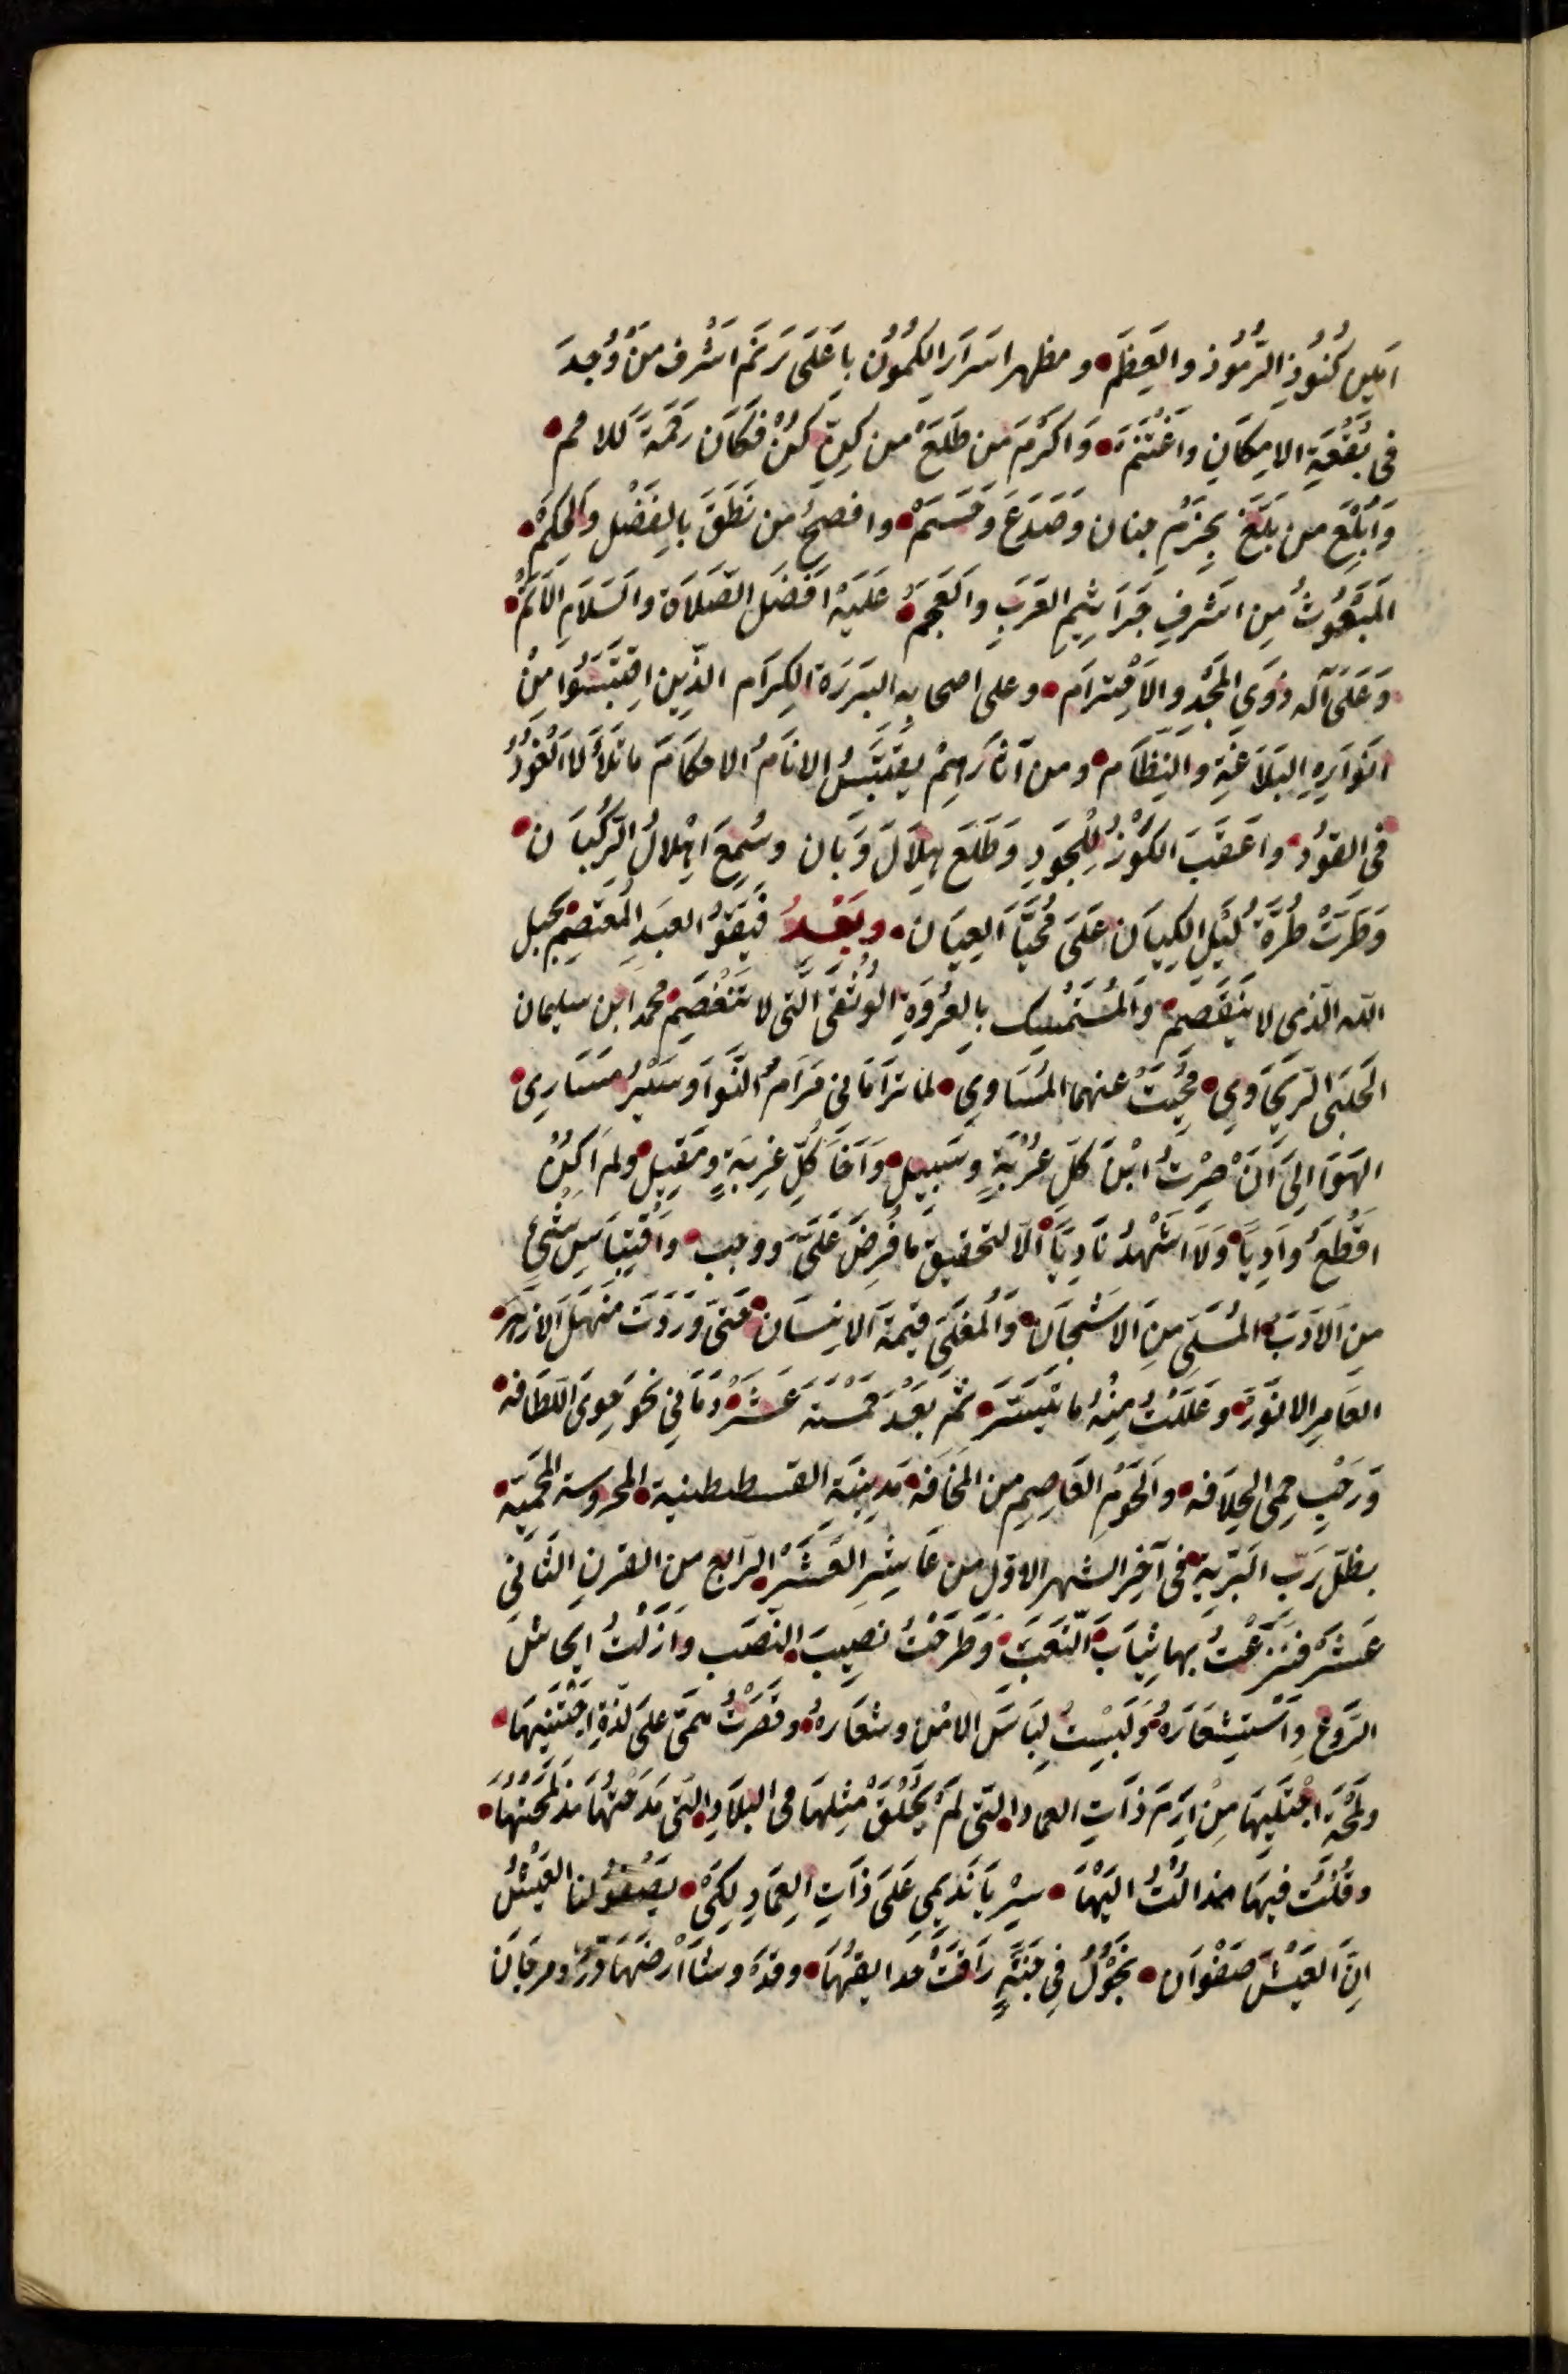 امين كُنُوزِ الرُّمُوز والعِظَم • ومظهر اسرار الكُمُون باعلَى رتم اشرف من وُجِدَ
فى بُقْعَةِ الامِكَانِ واغْتُنَم • وَاكرَم من طَلَعَ من كنّ كُنْ فَكَان رَحْمَةً للامم •
وَابلغ من بَلَغَ بِحَزْمِ جنان وصَدَعَ وقَسَمْ • وافصحُ من نَطَقَ بالفَضْل والحِكَمْ •
المَبعُوثُ مِن اشرفِ جَرَاثِيمِ العَرَبِ والعَجَمْ • عَلَيْه افضَل الصّلاة والسَلَامِ الاتَمّ •
وَعَلَى آله ذوى المَجْدِ والاحْتِرام • وعلى اصحابِه البَرَرَة الكِرَام الذّين اقتَبَسُوا مِنْ
انَوَارِه البَلاغَةِ والنِّظَام • ومن آثارِهِمْ يقتَبسُ الانَامُ الاحكَام ما تلالا العُقُودُ
فى العقُود • واعقَبَ الكُوْزُ للجُود وَطَلَع هِلَالَ وَبَان وسُمِعَ اهْلالُ الرّكبان •
وَطَرَّتْ طُرَّةُ لَيْلِ الكِيَان عَلَى مُحَيَّا العِيَان • وبَعْدُ فيَقوُ العبَدِ المُعتصِم بحبل
الله الّذى لا يَنْفَصِم • والمُسْتَمْسِك بالعُرْوَةِ الوُثْقَى الّتى لا تَنْفَصِم • محمد ابن سليمان
الحلبَى الرّيحَاوِي • مُحِيَتْ عنهما المسَاوي • لما ترامَانى مَرَامُ النَّوَا وسَيْرُ مَسَارِى •
الهَوَا الىَ انَ صِرْتُ ابْنَ كلِ غُرْبَةٍ وسَبيل • وَاخَا كُلِّ غَرِيبَةٍ ومَقِيل • ولم اكنْ
اقطَعُ وادِيَا • وَلَا اشْهدُ نَادِيَا • الّا لتحقيق ما فُرِضَ عَلَىّ ووجب • واقتِبَاسِ شئٍ
من الادَبِ • المُسَلّي مِنَ الاشْجَان • والمُغلَى قيمَة الانسَان • حَتى وَرَدَتْ منهَلَ الازهَر •
العَامِر الانوَر • وعَلَلْتُ مِنْهُ ما تيَسَّر • ثم بَعْدَ خمسَة عَشَر • دَعانى نحو هِوى اللّطافه •
وَرَحْبِ حِمى الخلافه • والحَرَم العَاصِمِ من المخَافه • مَدِينَةِ القسطنطينية • المحروسة المَحمِيّة •
بظلّ رَبّ البَرِيّه • فى آخِر الشهر الاوّل من عَاشِرِ العَشْرِ • الرّابع من القرن الثّاني
عَشَر فنَزَعْتُ بها ثِيَابَ التّعَب • وَطَرَحْتُ نصِيبَ النّصَب وازَلْتُ ايحاش
الرّوْعِ واسْتِشعَارَه • وَلَبِسْتُ لِبَاسَ الامْن وشعَارهُ • وقصَرْتُ هِمّتى علىَ لذّةِ اجْتَنِيهَا •
ولَمْحَة اجْتَلِيهَا مِنْ ارَمَ ذَاتِ العماد • الّتى لَمْ يُخْلَقْ مْثِلهَا فى البلَادِ • الّتى مَدَحْتُهَا مُذ لَمَحْتُهَا •
وقُلْتُ فيهَا مُذ اِلْتُ اليْهَا • سِرْ يَا نَدِيمِي عَلَى ذَاتِ العِمَادِ لِكَىْ • يَصْفُو لنا العَيْشُ
انَّ العَيْشَ صَفْوَان • نَجُولُ فِي جَنَّةٍ رَاقَتْ حَدَايقُهَا • وقدْ وشا ارْضَهَا دُرّ ومرجَان